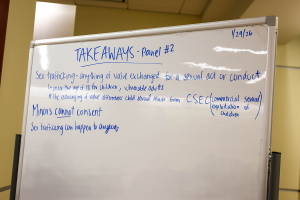 TAKEAWAYS - Panel #2
1/29/26
Sex trafficking - anything of value exchanged for a sexual act or conduct
under the age of 18 for children, vulnerable adults
* the exchanging of value differences child sexual abuse from CSEC (commercial sexual exploitation of children)
Minors cannot consent
Sex trafficking can happen to anybody